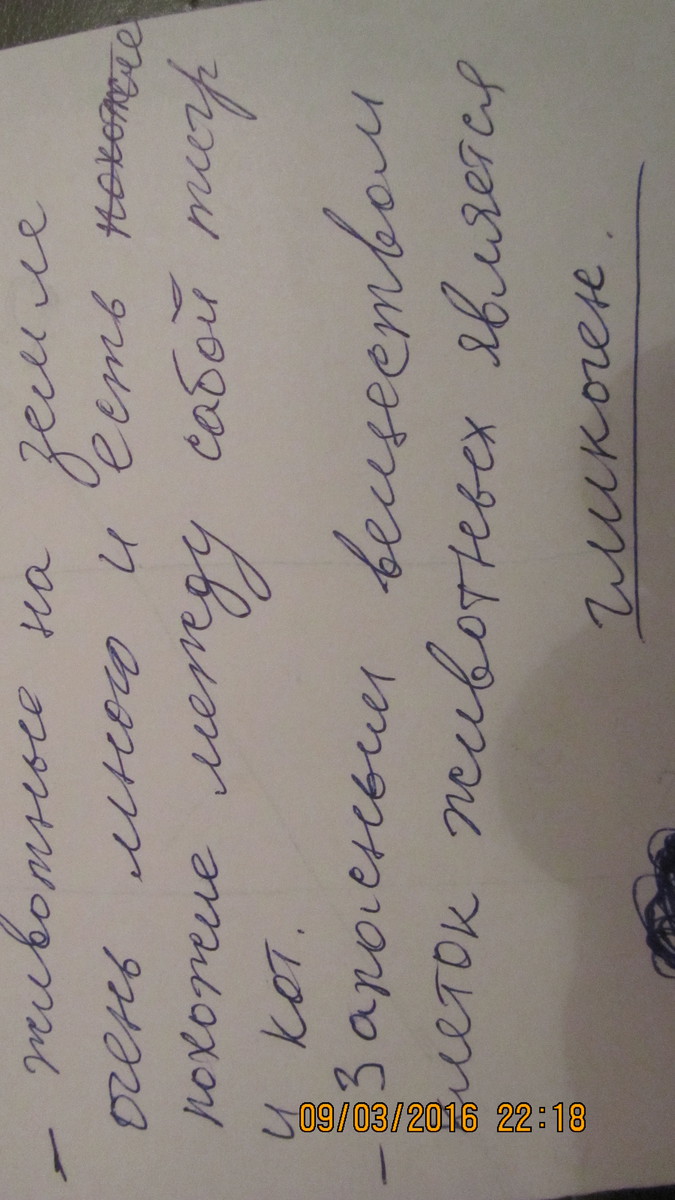 - животные на земле
очень много и есть похожие
похожие между собой тигр
и кот.
- Запасным веществом
клеток животных является
гликоген.
09/03/2016 22:18